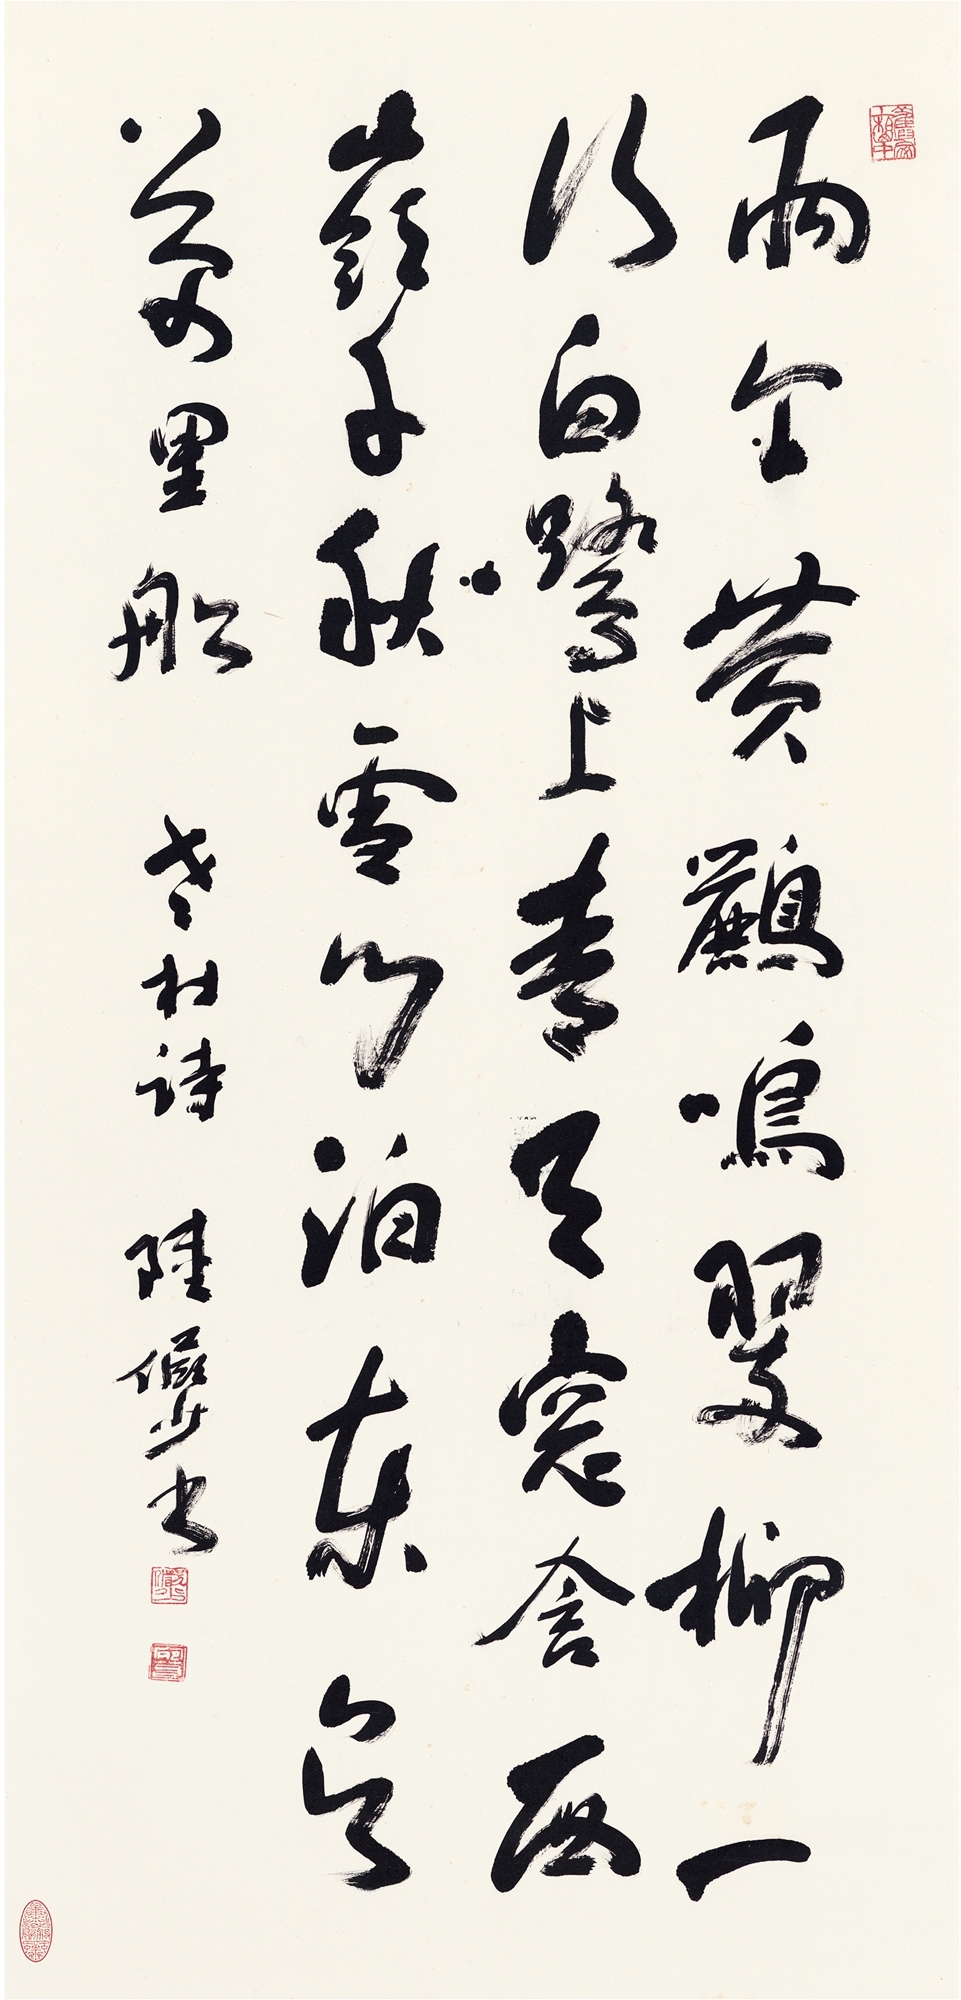 兩个黄鸝鳴翠柳一
行白鷺上青天窓含西
嶺千秋雪門泊東吳
萬里船 老杜詩 陸儼少书